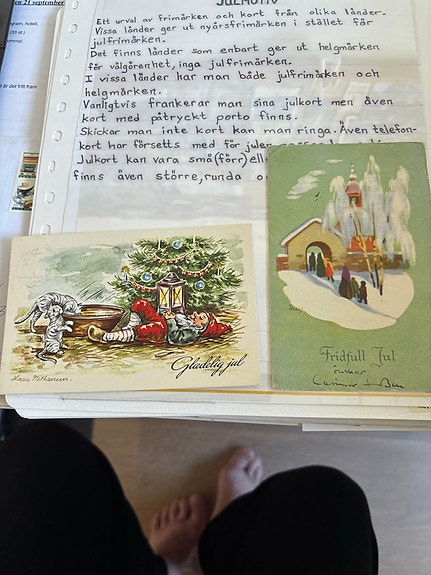 en 21 september
ogram, hotell,
(33 st.)
är det fritt fram
JULMOTIV
Ett urval av frimärken och kort från olika länder.
Vissa länder ger ut nyårsfrimärken i stället för
julfrimärken.
Det finns länder som enbart ger ut helgmärken
för välgörenhet, inga julfrimärken.
I vissa länder har man både julfrimärken och
helgmärken.
Vanligtvis frankerar man sina julkort men även
kort med påtryckt porto finns.
Skickar man inte kort kan man ringa. Även telefon-
kort har försetts med för julen
Julkort kan vara små (förr) ell
finns även större, runda o
Glædelig jul
Fridfull Jul
önskar